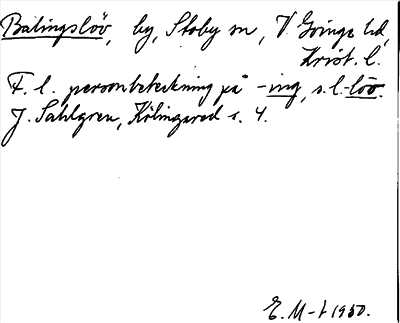 Bälingslöv, by, Stoby sn, V. Göinge hd,
Krist. l.
F. l. personbeteckning på -ing, s. l. -löv.
J. Sahlgren, Kölingared s. 4.
E. M-t 1950.